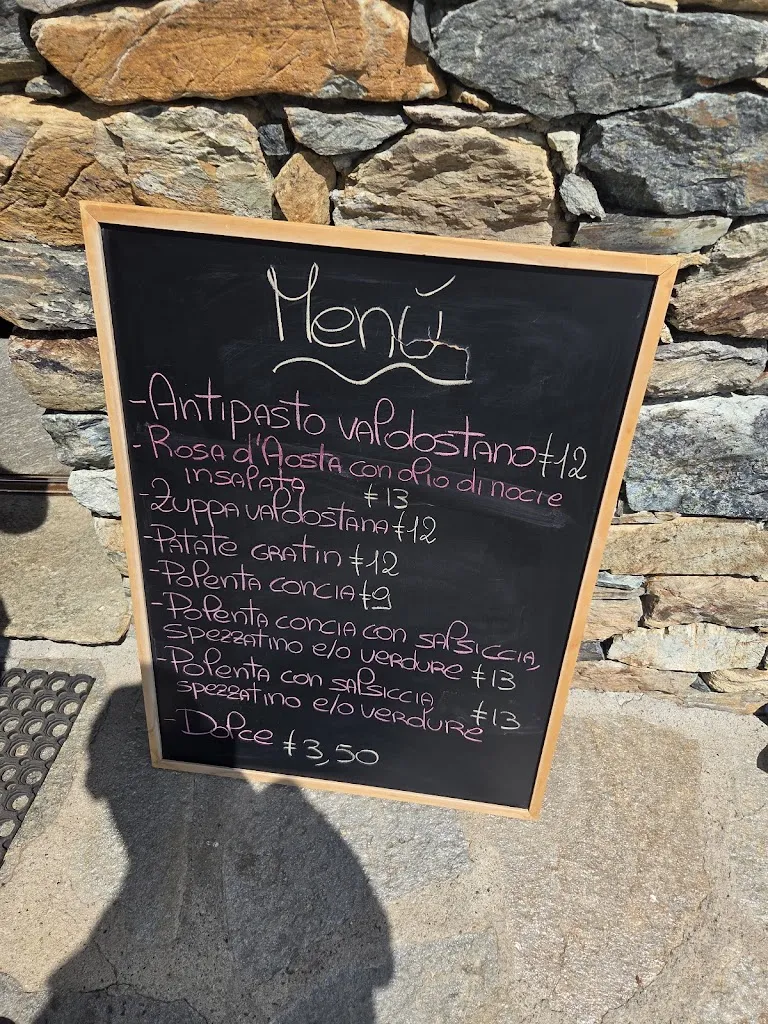 Menù
- Antipasto valdostano €12
- Rosa d'Aosta con olio di noci e
insalata €13
- Zuppa valdostana €12
- Patate gratin €12
- Polenta concia €9
- Polenta concia con salsiccia,
spezzatino e/o verdure €13
- Polenta con salsiccia
spezzatino e/o verdure €13
- Dolce €3,50